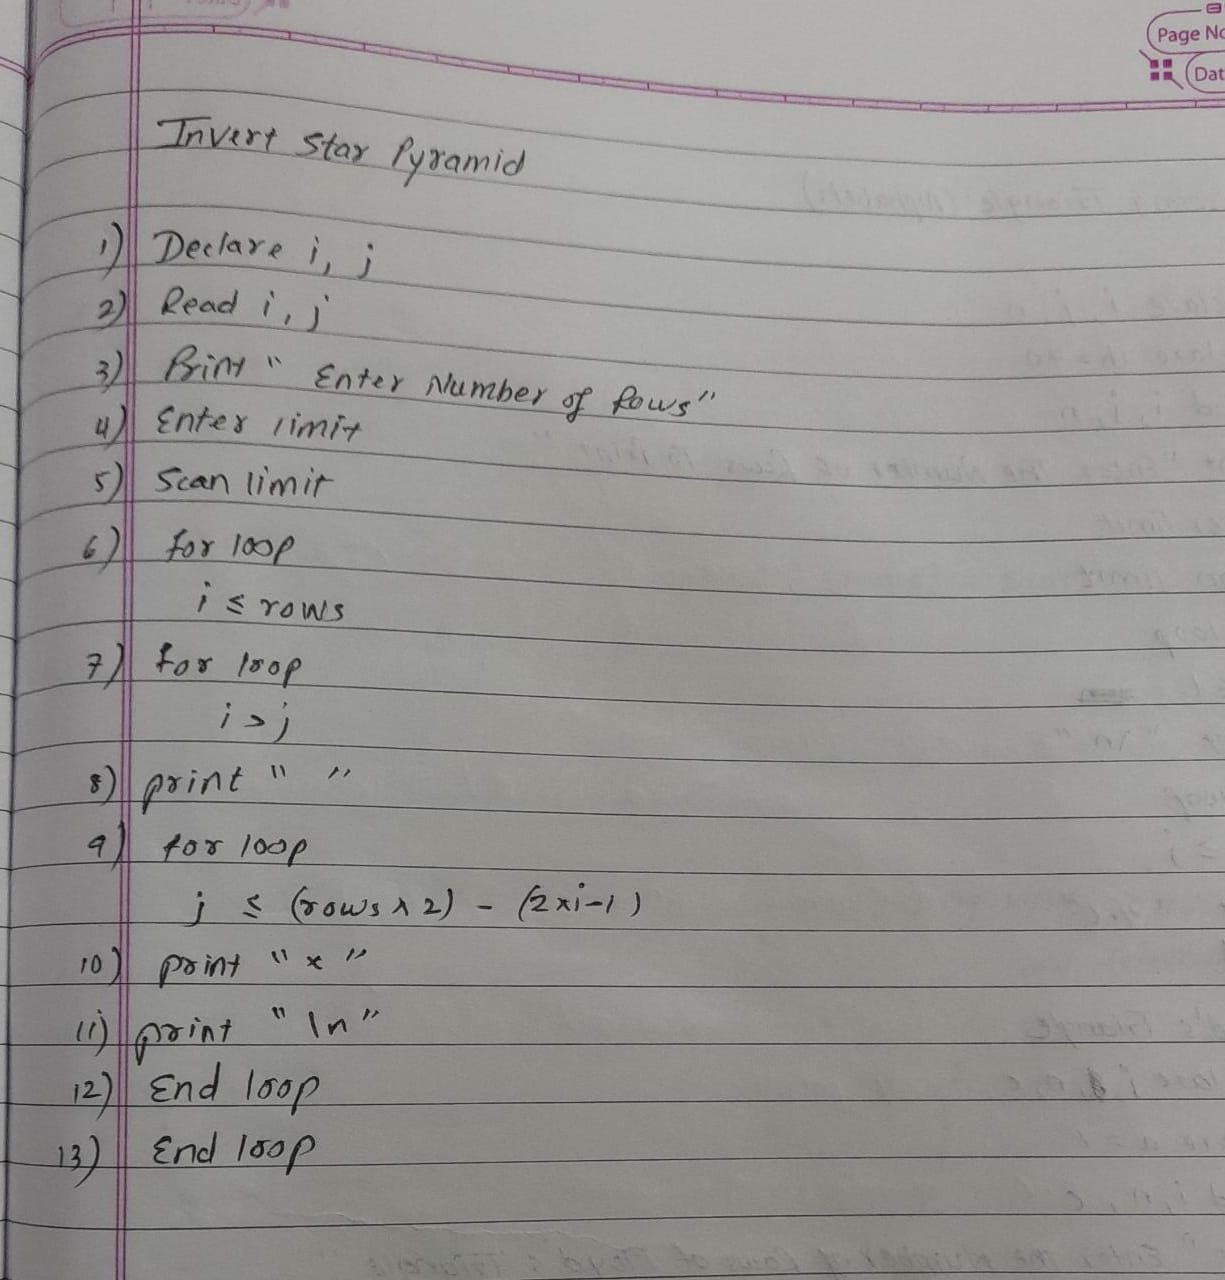 Page No
Dat
Invert Star Pyramid
1) Declare i, j
2) Read i, j
3) Print " Enter Number of Rows"
4) Enter limit
5) Scan limit
6) for loop
i ≤ rows
7) for loop
i > j
8) print " "
9) for loop
j ≤ (rows x 2) - (2xi-1)
10) print " x "
11) print " \n"
12) End loop
13) End loop